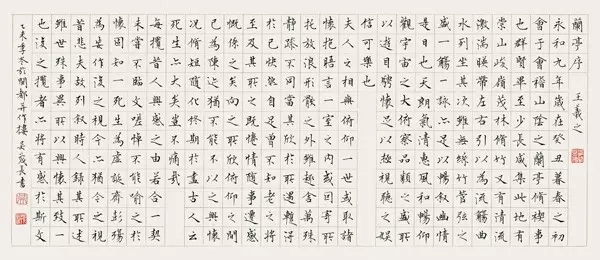 蘭亭序 王羲之
永和九年歲在癸丑暮春之初
會于會稽山陰之蘭亭脩稧事
也群賢畢至少長咸集此地有
崇山峻嶺茂林脩竹又有清流
激湍暎帶左右引以為流觴曲
水列坐其次雖無絲竹管弦之
盛一觴一詠亦足以暢敘幽情
是日也天朗氣清惠風和暢仰
觀宇宙之大俯察品類之盛所
以遊目騁懷足以極視聽之娛
信可樂也
夫人之相與俯仰一世或取諸
懷抱悟言一室之內或因寄所
託放浪形骸之外雖趣舍萬殊
靜躁不同當其欣於所遇暫得
於己快然自足曾不知老之將
至及其所之既惓情隨事遷感
慨係之矣向之所欣俛仰之間
已為陳迹猶不能不以之興懷
況脩短隨化終期於盡古人云
死生亦大矣豈不痛哉
每攬昔人興感之由若合一契
未嘗不臨文嗟悼不能喻之於
懷固知一死生為虛誕齊彭殤
為妄作後之視今亦由今之視
昔悲夫故列敘時人錄其所述
雖世殊事異所以興懷其致一
也後之攬者亦將有感於斯文
乙未季冬於閩都